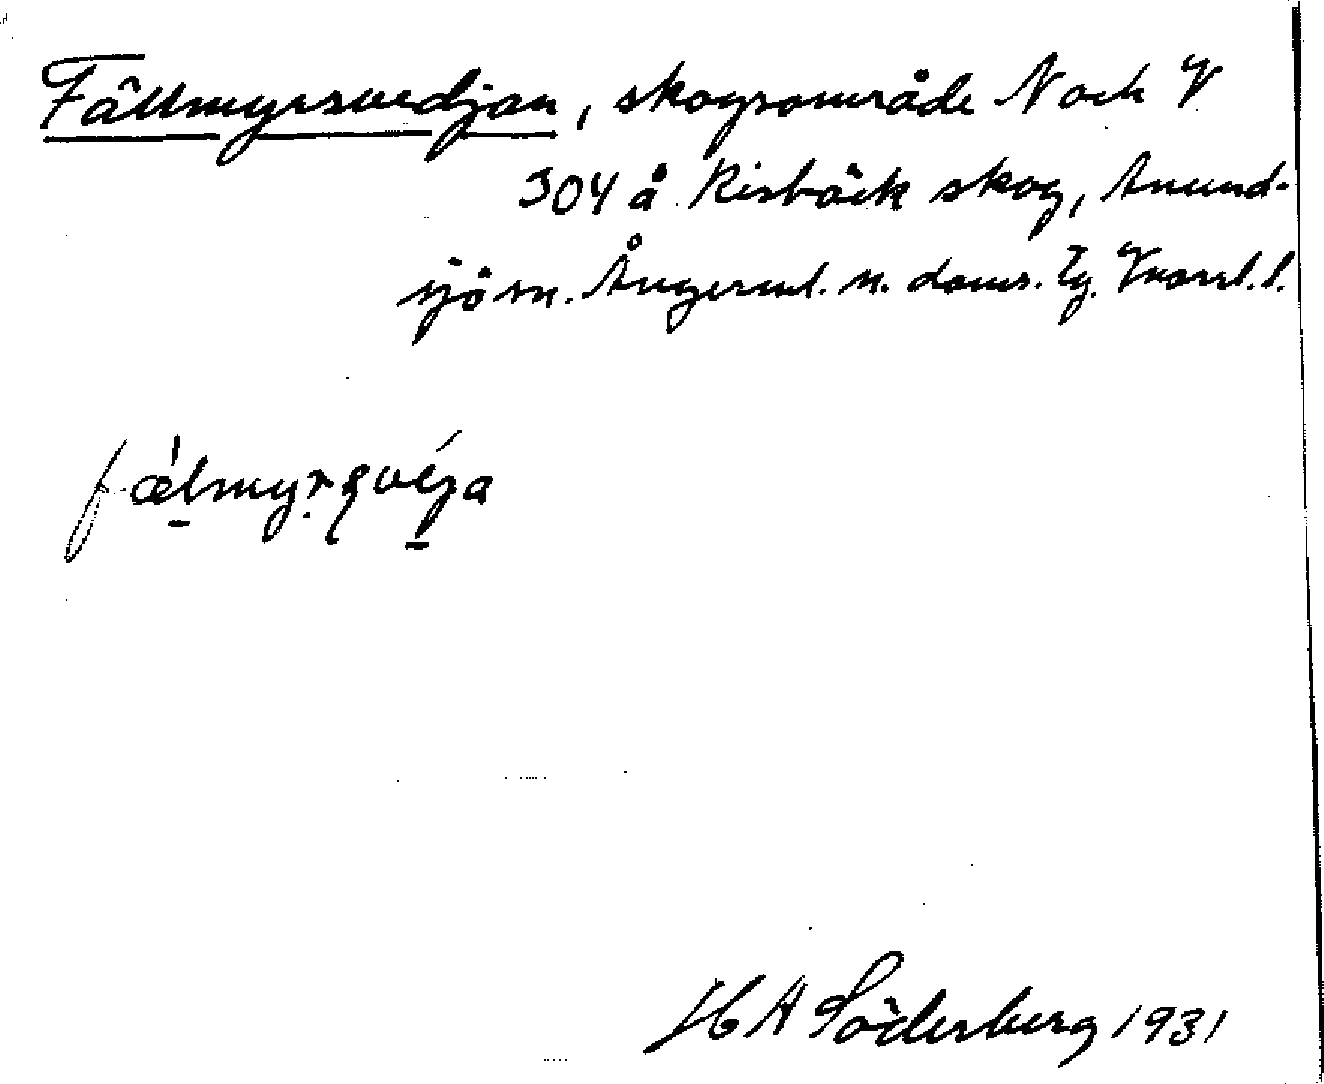 Fällmyrsvedjan, skogsområde N och V
304 å Risbäck skog, Anund-
sjö sn. Ångerml. n. doms. Tg. Vrl. l.
fælmyrsveja
H A Söderberg 1931